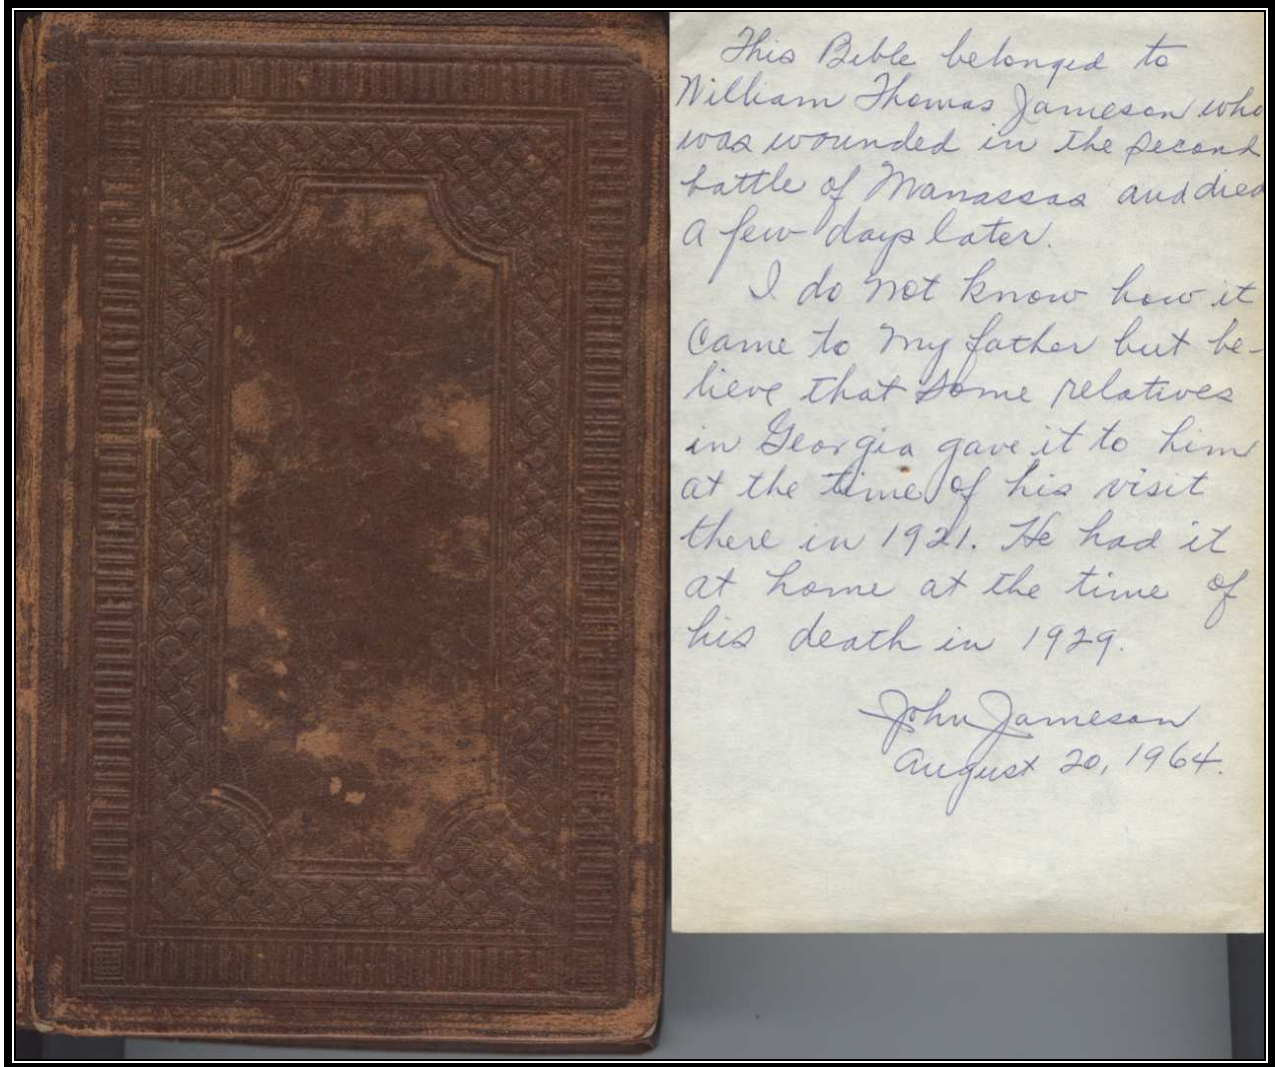 This Bible belonged to
William Thomas Jameson who
was wounded in the second
battle of Manassas and died
a few days later.
I do not know how it
came to my father but be-
lieve that some relatives
in Georgia gave it to him
at the time of his visit
there in 1921. He had it
at home at the time of
his death in 1929.
John Jameson
August 20, 1964.